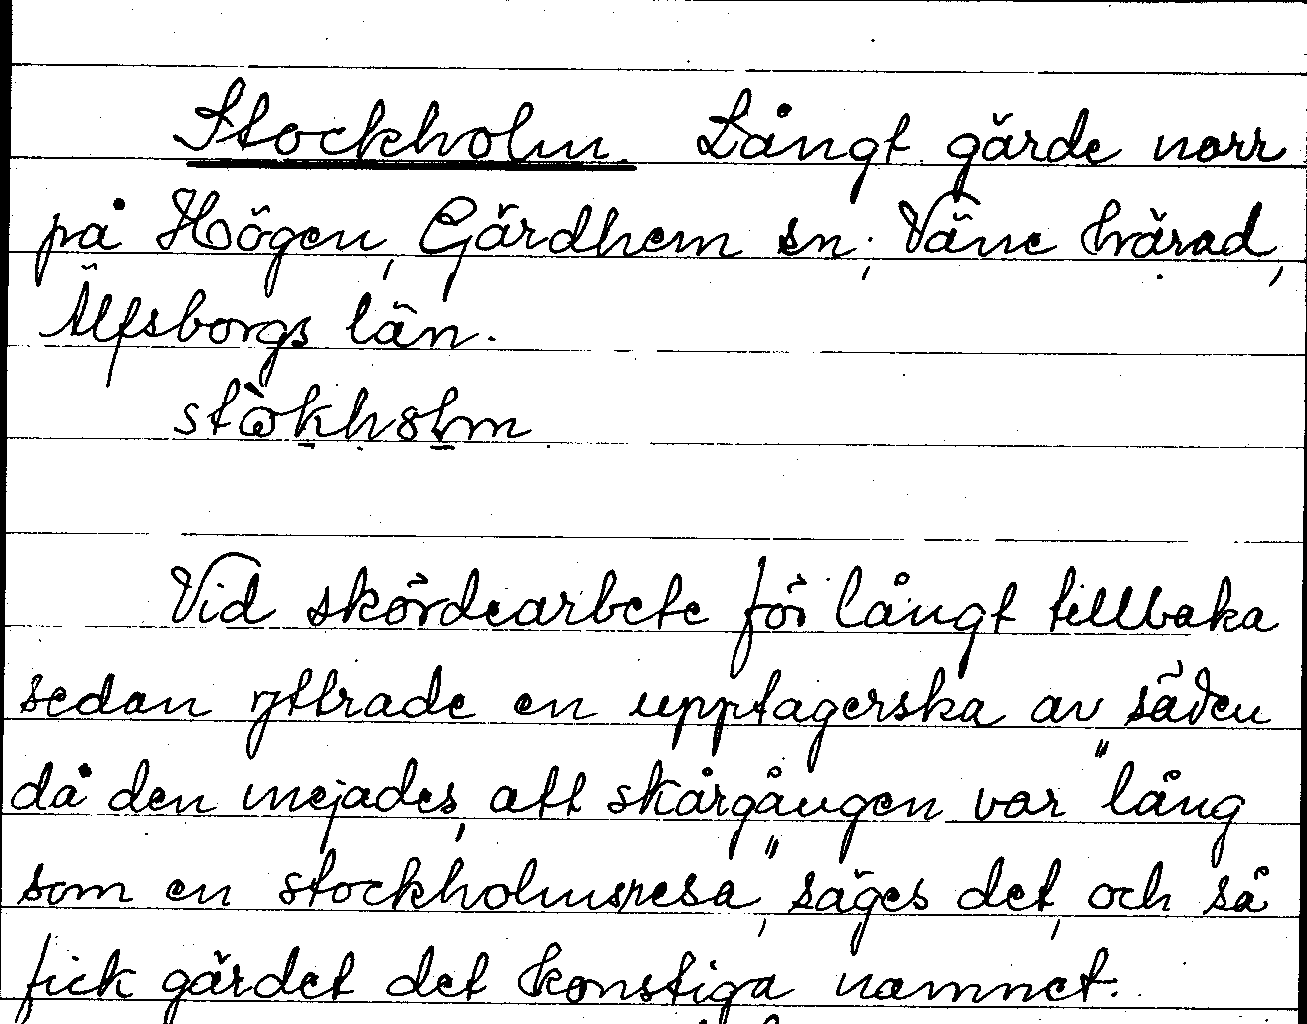 Stockholm. Långt gärde norr
på Högen, Gärdhem sn; Väne härad,
Älfsborgs län.
Vid skördearbete för långt tillbaka
sedan yttrade en upptagerska av säden
då den mejades, att skårgången var "lång
som en stockholmsresa," säges det, och så
fick gärdet det konstiga namnet.